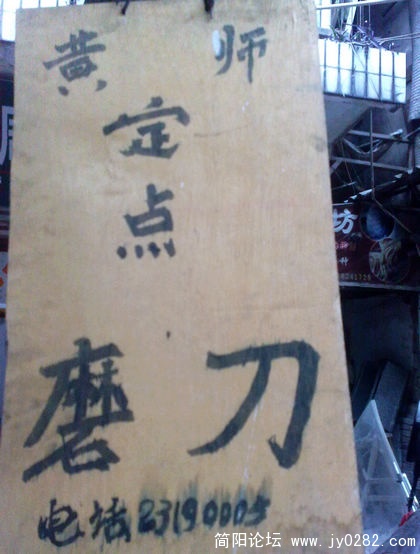 黄 师
定
点
磨 刀
电话23190005
坊
简阳论坛 www.jy0282.com